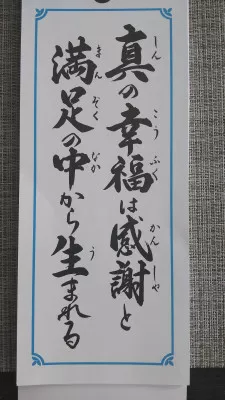 真の幸福は感謝と
満足の中から生まれる